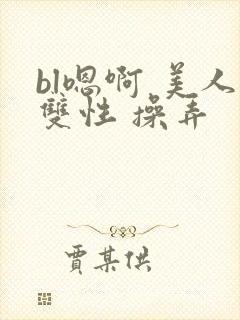 bl嗯啊 美人
雙性 操弄
賈某供